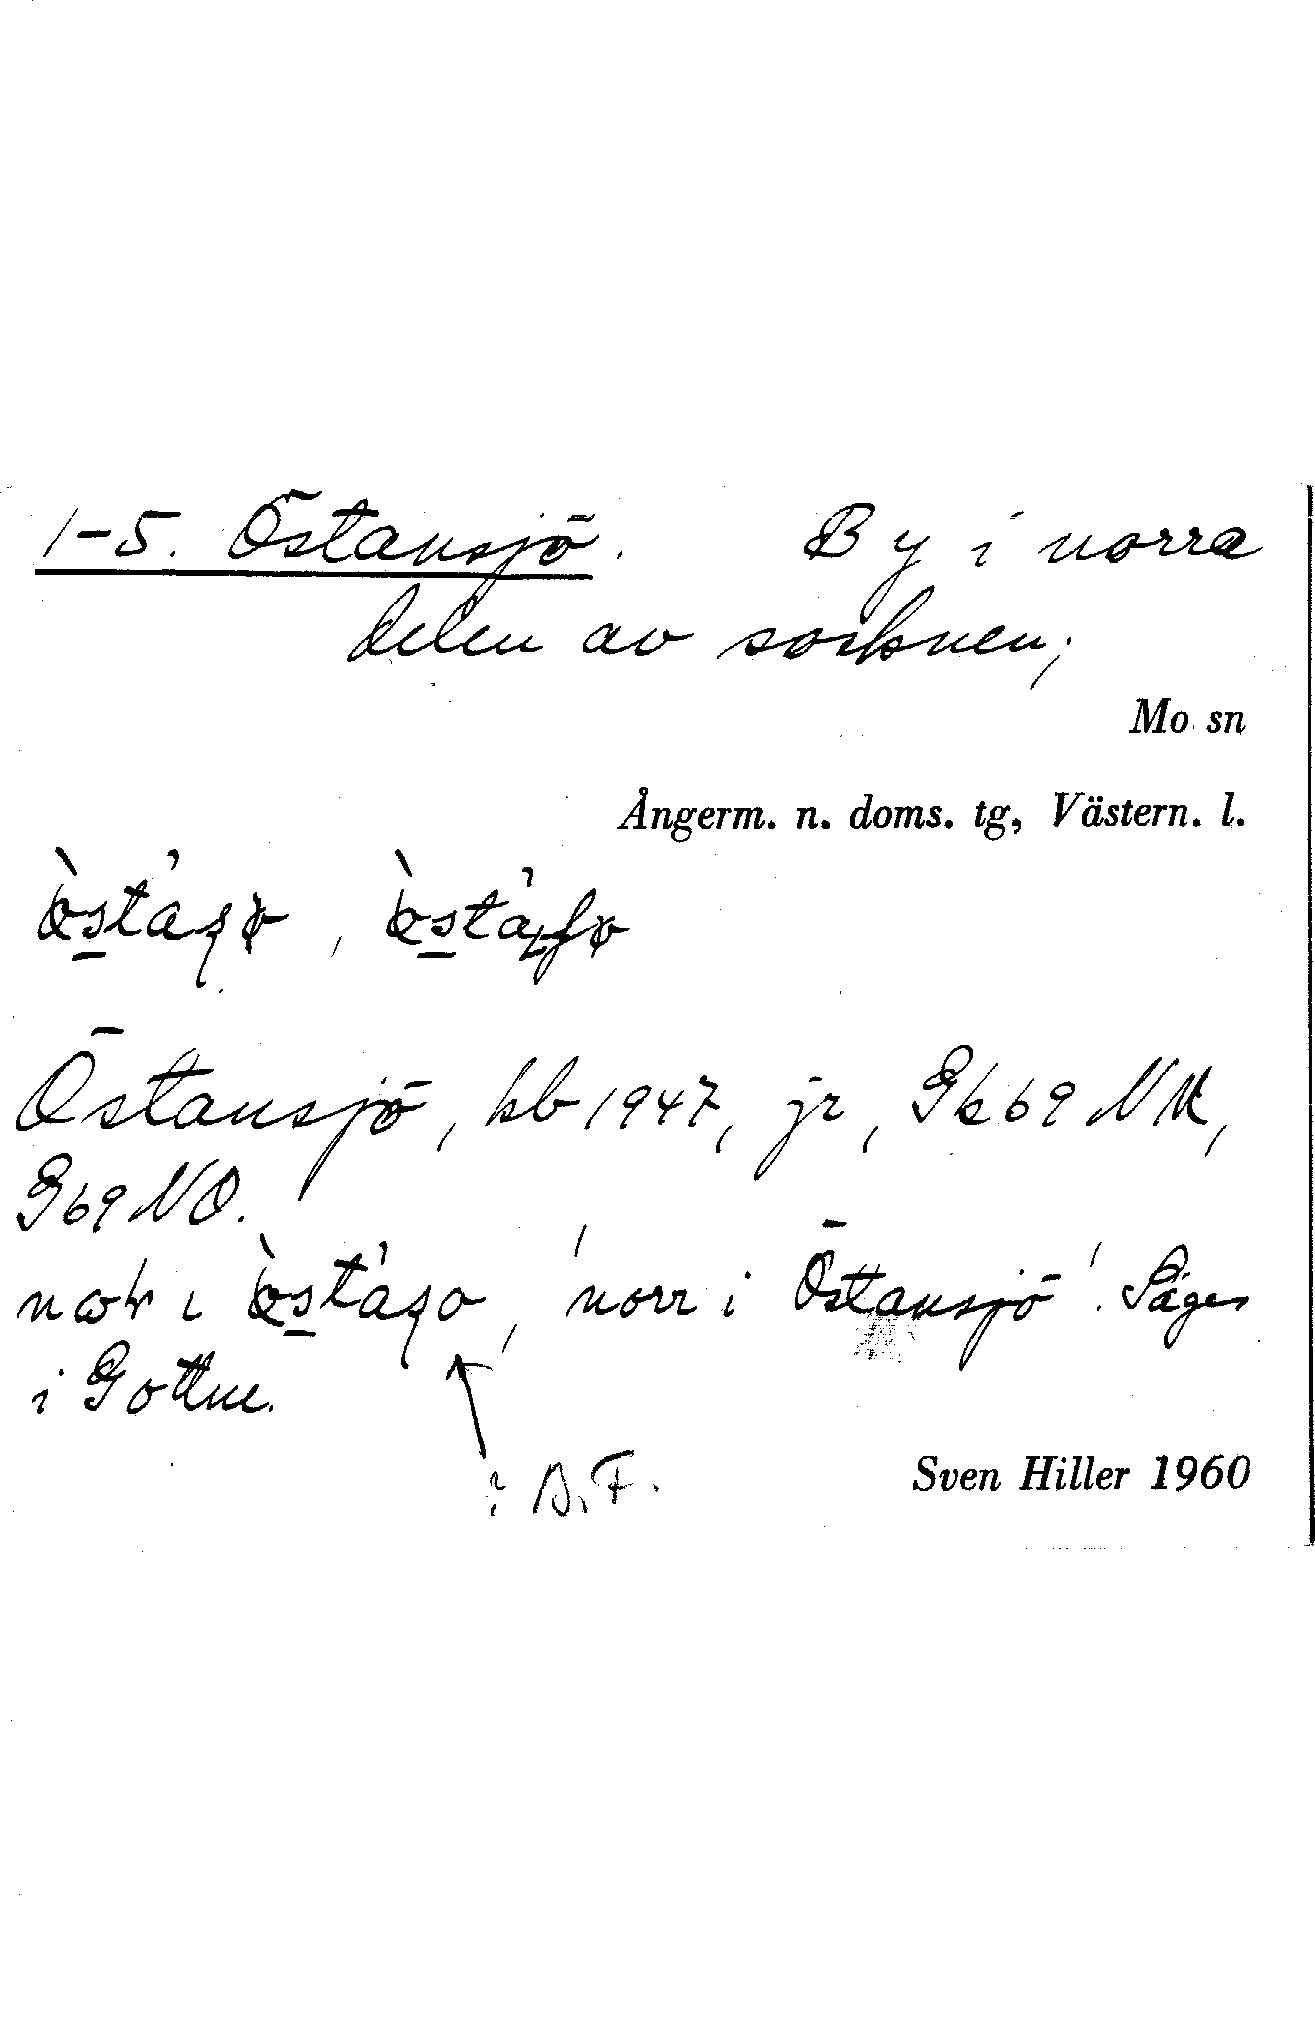 1-5. Östansjö. By i norra
delen av socknen;
Mo sn
Ångerm. n. doms. tg, Västern. l.
Östansjö, kb 1947, jr, Gk 69 NV,
G 69 NO.
i 'norr i Östansjö'. Säges
i Gottne.
? A.F.
Sven Hiller 1960